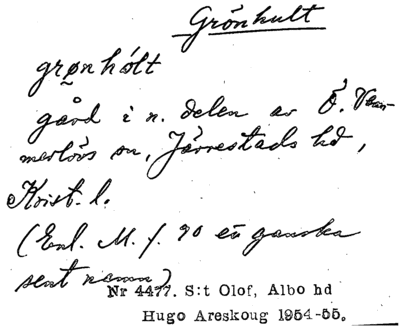 Grönhult
grønhólt
gård i n. delen av Ö. Vem-
merlövs sn, Järrestads hd,
Krist. l.
(Enl. M. f. 90 ett ganska
sent namn)
Nr 4477. S:t Olof, Albo hd
Hugo Areskoug 1954-55.